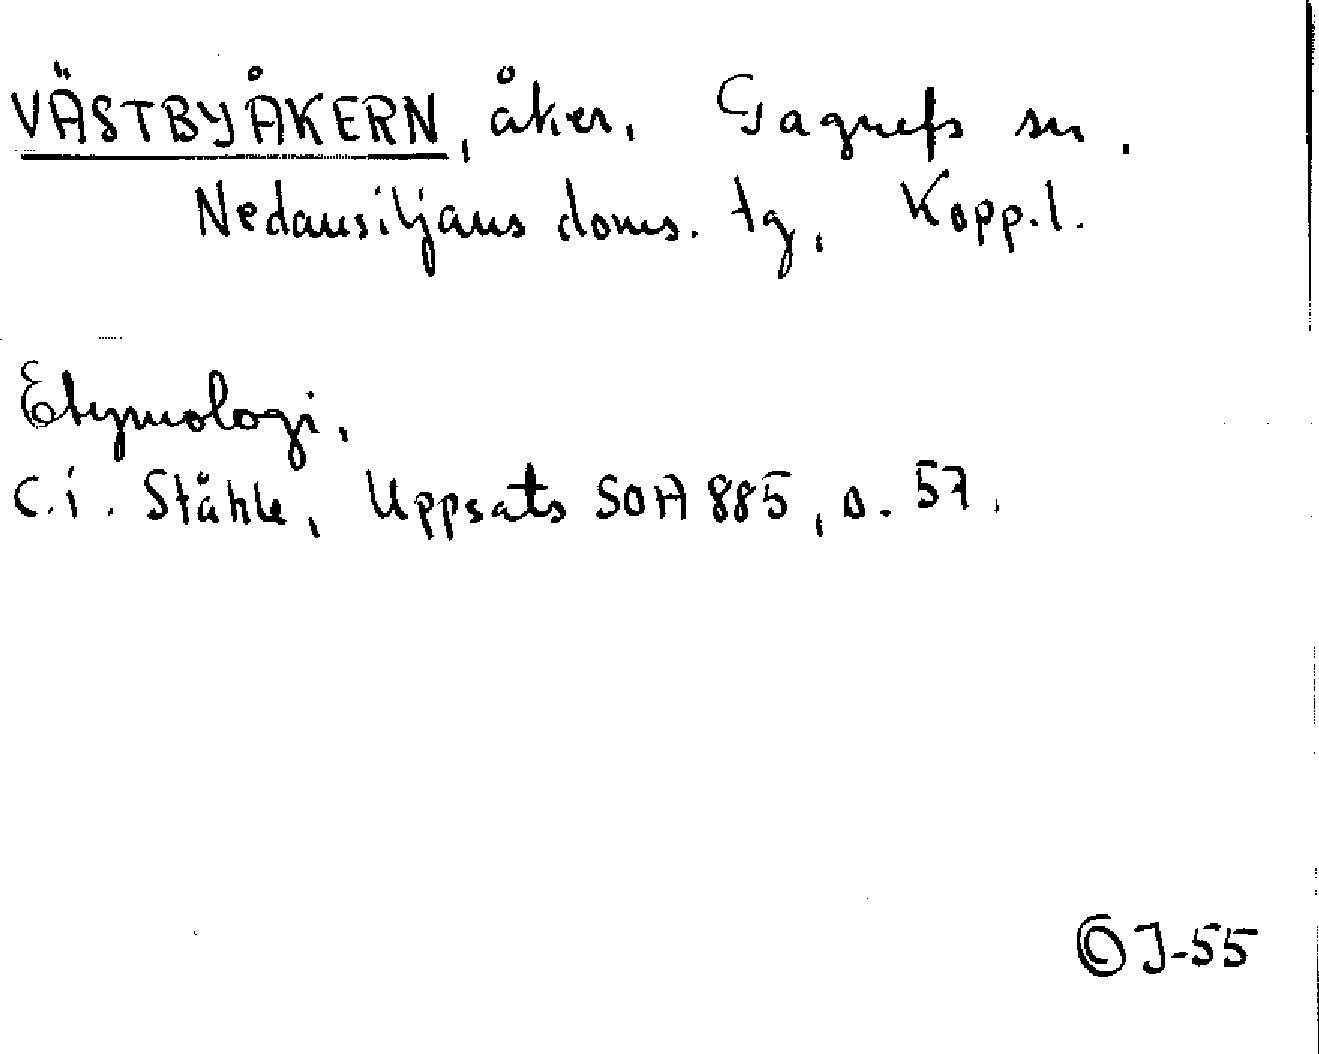 VÄSTBYÅKERN, åker, Gagnefs sn.
Nedansiljans doms. tg, Kopp.l.
Etymologi,
C.I. Ståhle, Uppsats SOA 885, s. 57.
©J-55